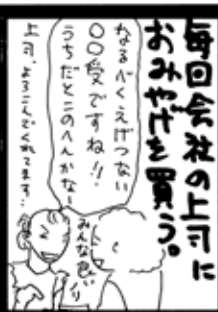 毎回会社の上司に
おみやげを買う。
なるべくえげつない
○○受ですね!!
うちだとこのへんかなー
みんな良い
ノリ
上司、よろこんでくれてます…